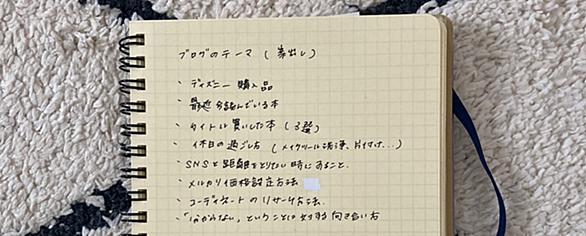 ブログのテーマ (書出し)
・ディズニー購入品
・最近今読んでいる本
・タイトル買いした本 (3選)
・休日の過ごし方 (メイクツール洗浄、片付け...)
・SNSと距離をとりたい時にすること。
・メルカリ価格設定方法
・コーディネートのリサーチ方法.
・「分からない」ということに対する向き合い方